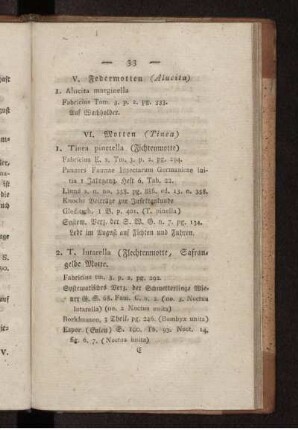 — 33 —
V. Federmotten (Alucita)
1. Alucita marginella
Fabricius Tom. 3. p. 2. pg. 333.
Auf Wachholder.
VI. Motten (Tinea)
1. Tinea pinetella (Fichtenmotte)
Fabricius E. s. Tm. 3. p. 2. pg. 294.
Panzers Faunae Insectorum Germanicae ini-
tia 1 Jahrgang. Heft 6. Tab. 22.
Linné s. n. no. 358. pg. 886. ed. 13. n. 358.
Knochs Beiträge zur Insektengeschichte
1 B. p. 400. (T. pinella)
System. Verz. der S. W. G. n. 7. pg. 134.
Lebt im August auf Fichten und Fuhren.
2. T. lutarella (Flechtenmotte, Safran-
gelbe Motte.
Fabricius tm. 3. p. 2. pg. 292.
Systematisches Verz. der Schmetterlinge Wie-
ner G. S. 68. Fam. C. n. 2. (no 3. Noctua
lutarella) (no. 2 Noctua unita)
Borkhausen, 3 Theil. pg. 246. (Bombyx unita)
Esper. (Eulen) S. 180. Tb. 93. Noct. 14.
fig. 6. 7. (Noctua unita)
C
V.